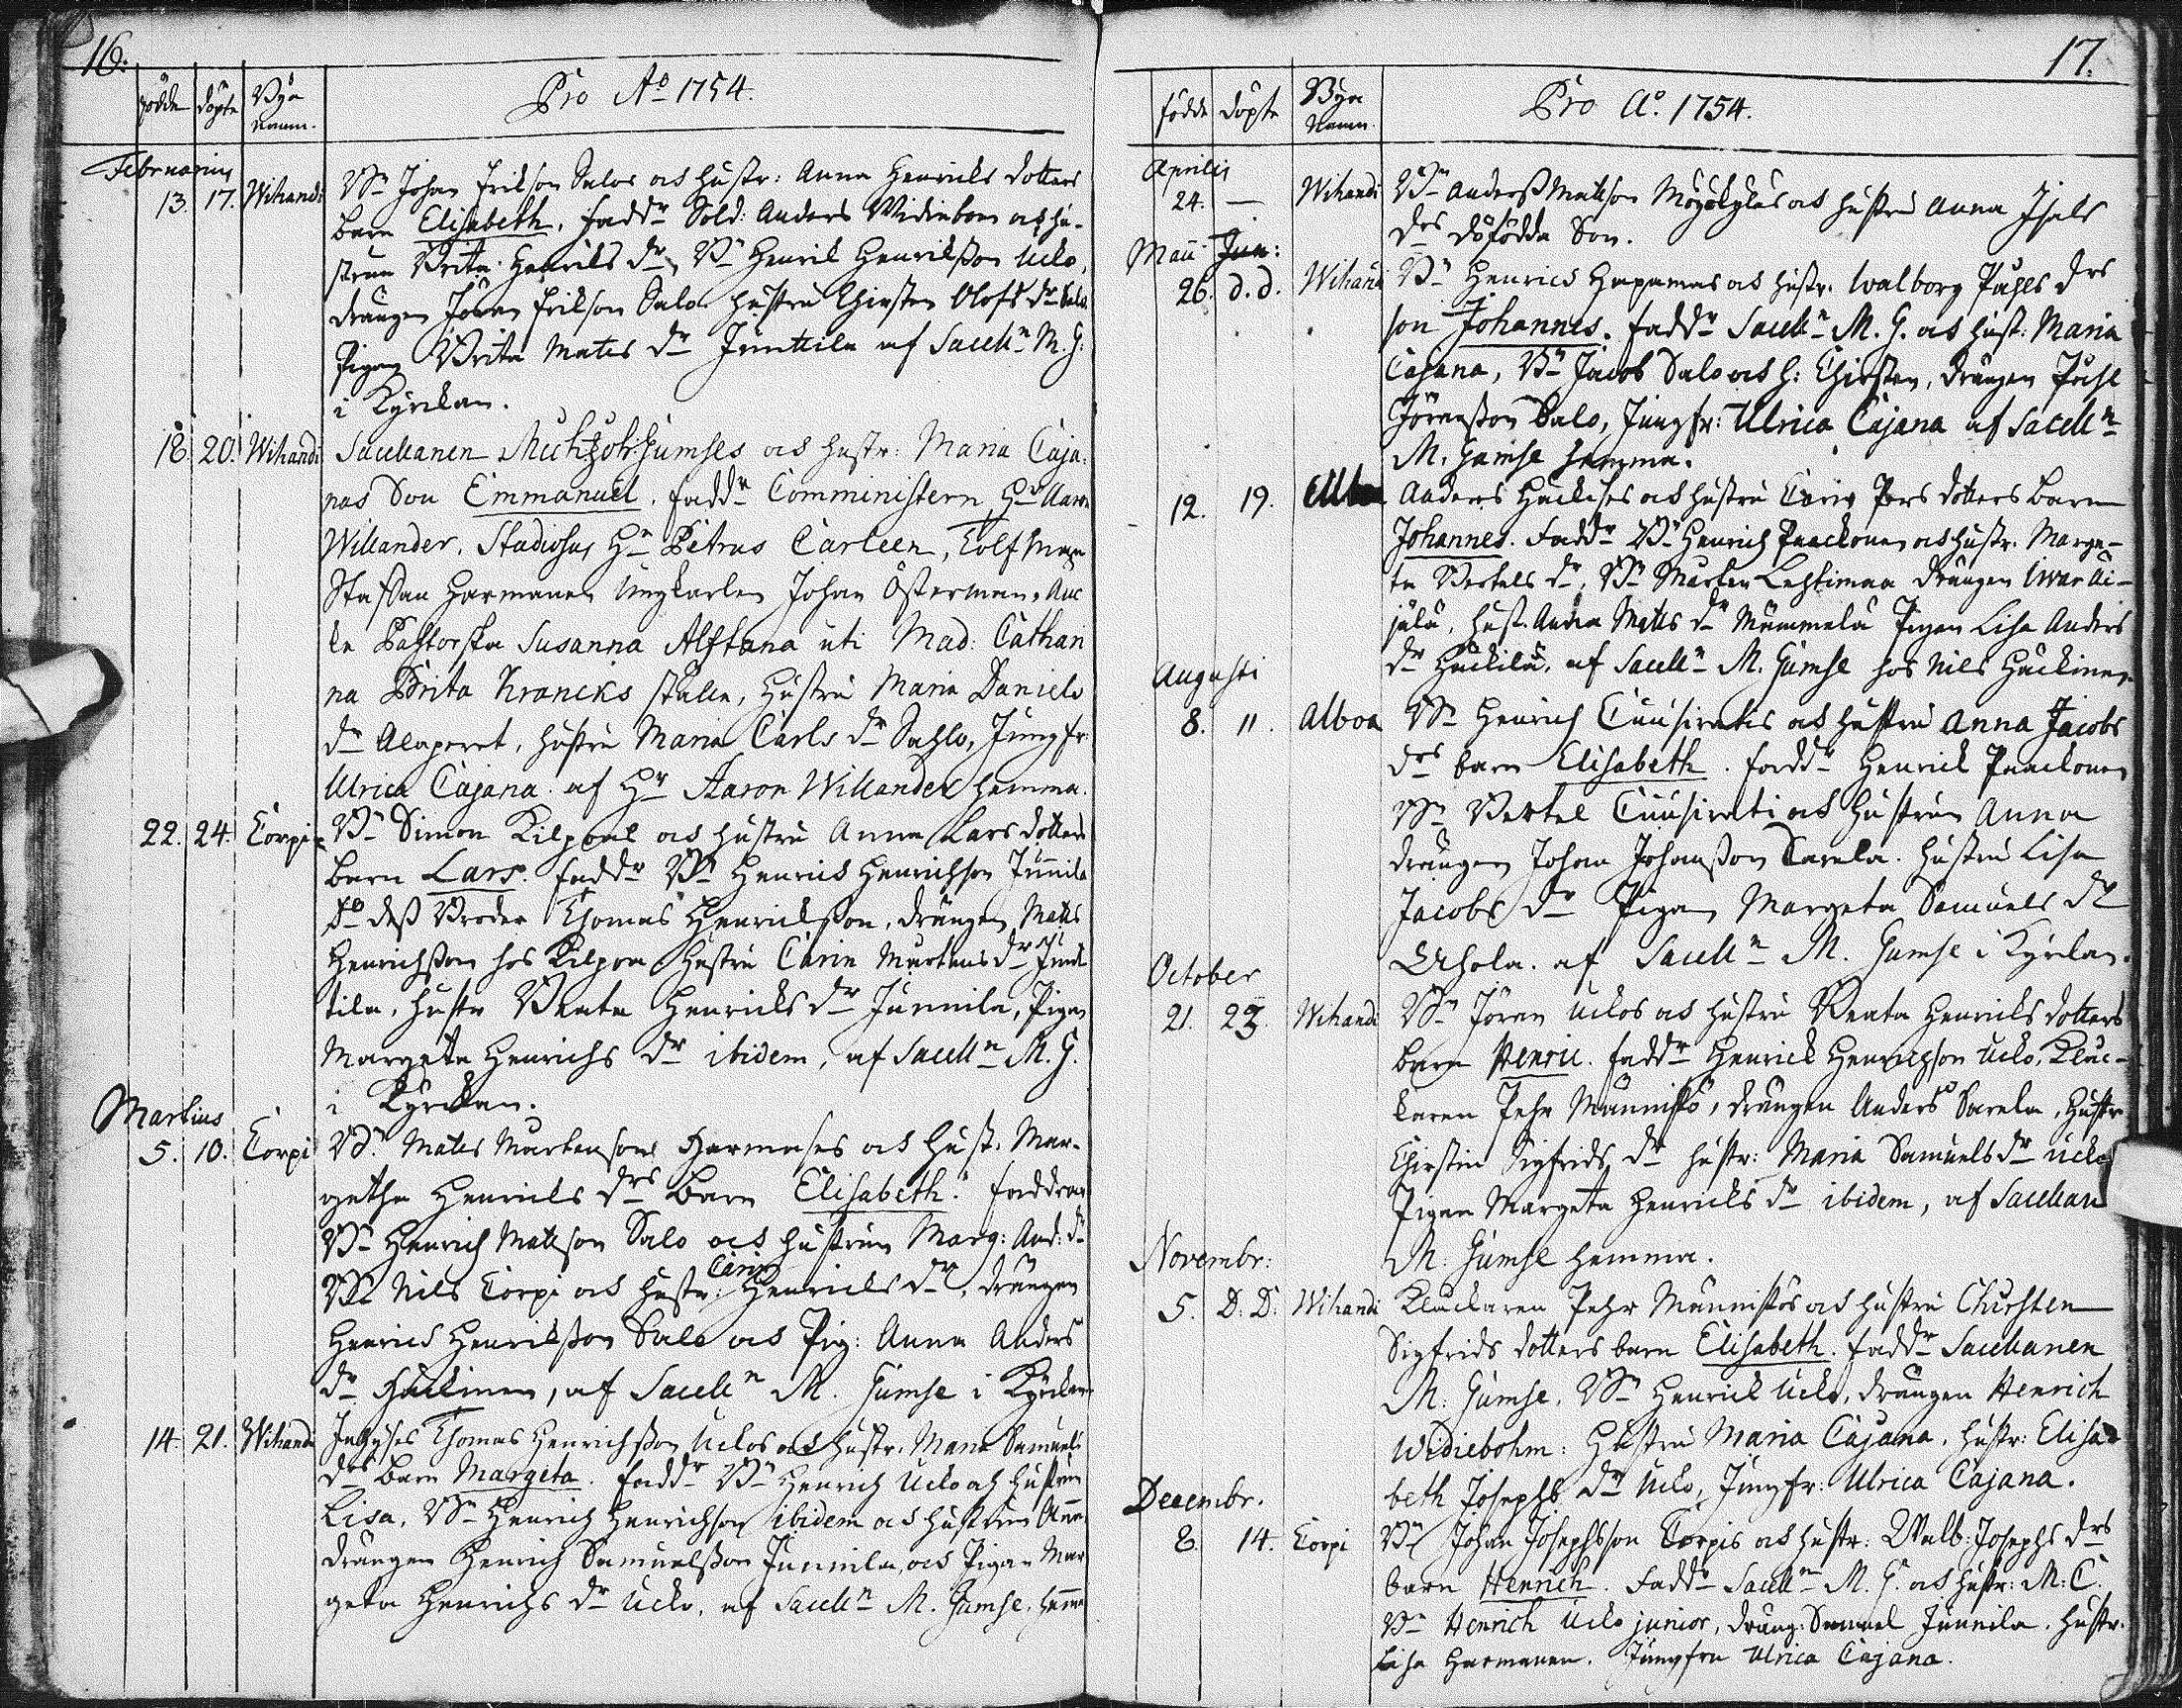 16.
födde döpte Byn namn. Pro Ao 1754.
Februarius
13. 17. Wihandi Bn Johan Erikson Salos och hustr: Anna Henricks dotters
barn Elisabeth, faddr Sold: Anders Widinbom och hu-
strun Brita Henriks dr, Bn Henrik Henriksson Ucko,
drängen Jöran Erikson Salo hustru Chirsten Olofs dr Salo
Pigan Brita Matts dr Junttila af Sacelln M. G:
i Kyrckan.
18. 20. Wihandi Sacellanen Gumses och hustr: Maria Caja-
nas Son Emmanuel. faddr Comministern, Hr Aaron
Willander, Studiosus Hr Petrus Carleen,
Staffan Harmanen Ungkarlen Johan Österman,
Pastorska Susanna Alftana uti Mad: Cathari
na Brita Krancks ställe, hustru Maria Daniels
dr Alaperet, hustru Maria Carls dr Sahlo, Jungfr:
Ulrica Cajana. af Hr Aaron Willander hemma.
22. 24. Torpi Bn Simon Kilpoas och hustru Anna Lars dotters
barn Lars. faddr Bn Henrick Henrichson Junnila
Do dess Broder Thomas Henrickson, drängen Matts
Henrichsson hos Kilpoa hustru Carin Martens dr Junt
tila, hustr Beata Henricks dr Junnila, Pigan
Margeta Henrichs dr ibidem, af Sacelln M. G.
i Kyrckan.
Martius
5. 10. Torpi Bn Matts Martensons Harmases och hust. Mar-
getha Henricks drs barn Elisabeth. faddrar
Bn Henrich Mattson Salo och hustrun Marg: And: dr
Carin
Bn Nils Torpi och hustr: Henricks dr, drängen
Henrick Henriksson Salo och Pig: Anna Anders
dr Häckinen, af Sacelln M. Gumse i Kyrckan
14. 21. Wihandi Inhyses Thomas Henrichsson Uckos och hustr. Maria Samuels
drs barn Margeta. faddr Bn Henrich Ucko och hustrun
Lisa, Bn Henrich Henrichson ibidem och hustrun Anna
drängen Henrich Samuelsson Junnila, och Pigan Mar
geta Henrichs dr Ucko, af Sacelln M. Gumse. hemma
17.
födde döpte Byn Namn Pro Ao. 1754.
Aprilis
24. — Wihandi Bn Anders Mattson och hustru Anna
drs dödfödda Son.
Maii Jun:
26. d. d. Wihandi Bn Henrics Hapamas och hustr. Walborg Påhls drs
son Johannes. faddr Sacelln M. G. och hust: Maria
Cajana, Bn Jacob Salo och h: Chirsten, drängen Påhl
Jöransson Salo, Jungfr: Ulrica Cajana af Sacelln
M. Gumse hemma.
12. 19. Alboa Anders Häckises och hustru Carin Pers dotters barn
Johannes. Faddr Bn Henrich Paackonen och hustr. Marge-
ta Bertels dr, Bn Mårten Lehtimaa drängen Iwar Äi-
jälä, hust. Anna Matts dr Mämmelä Pigan Lisa Anders
dr Häckilä, af Sacelln M. Gumse hos Nils Häckinen
Augusti
8. 11. Alboa Bn Henrich Cuusiratis och hustru Anna Jacobs
drs barn Elisabeth. faddr Henrick Paackonen
Bn Bertel Cuusirati och hustrun Anna
drängen Johan Johansson Carela. hustru Lisa
Jacobs dr Pigan Margeta Samuels dr
Uhola. af Sacelln M. Gumse i Kyrckan.
October
21. 23. Wihandi Bn Jöran Uckos och hustru Beata Henricks dotters
barn Henric. faddr Henrick Henrichson Ucko, Kluc-
karen Pehr Männistö, drängen Anders Sarela, hustr
Chirstin Sigfrids dr hustr: Maria Samuels dr Ucko
Pigan Margeta Henricks dr ibidem, af Sacellan
M: Gumse hemma.
Novembr:
5. D: D: Wihandi Kluckaren Pehr Männistös och hustru Chirsten
Sigfrids dotters barn Elisabeth. faddr Sacellanen
M: Gumse, Bn Henrick Ucko, drängen Henrich
Widiebohm: Hustru Maria Cajana, hustr: Elisa-
beth Josephs dr Ucko, Jungfr: Ulrica Cajana.
Decembr.
8. 14. Torpi Bn Johan Josephsson Torpis och hustr: Walb: Josephs drs
barn Henrich. Faddr Sacelln M. G. och hustr: M: C.
Bn Henrich Ucko junior, dräng: Samuel Junnila. hustr.
Lisa Harmanen. Jungfru Ulrica Cajana.